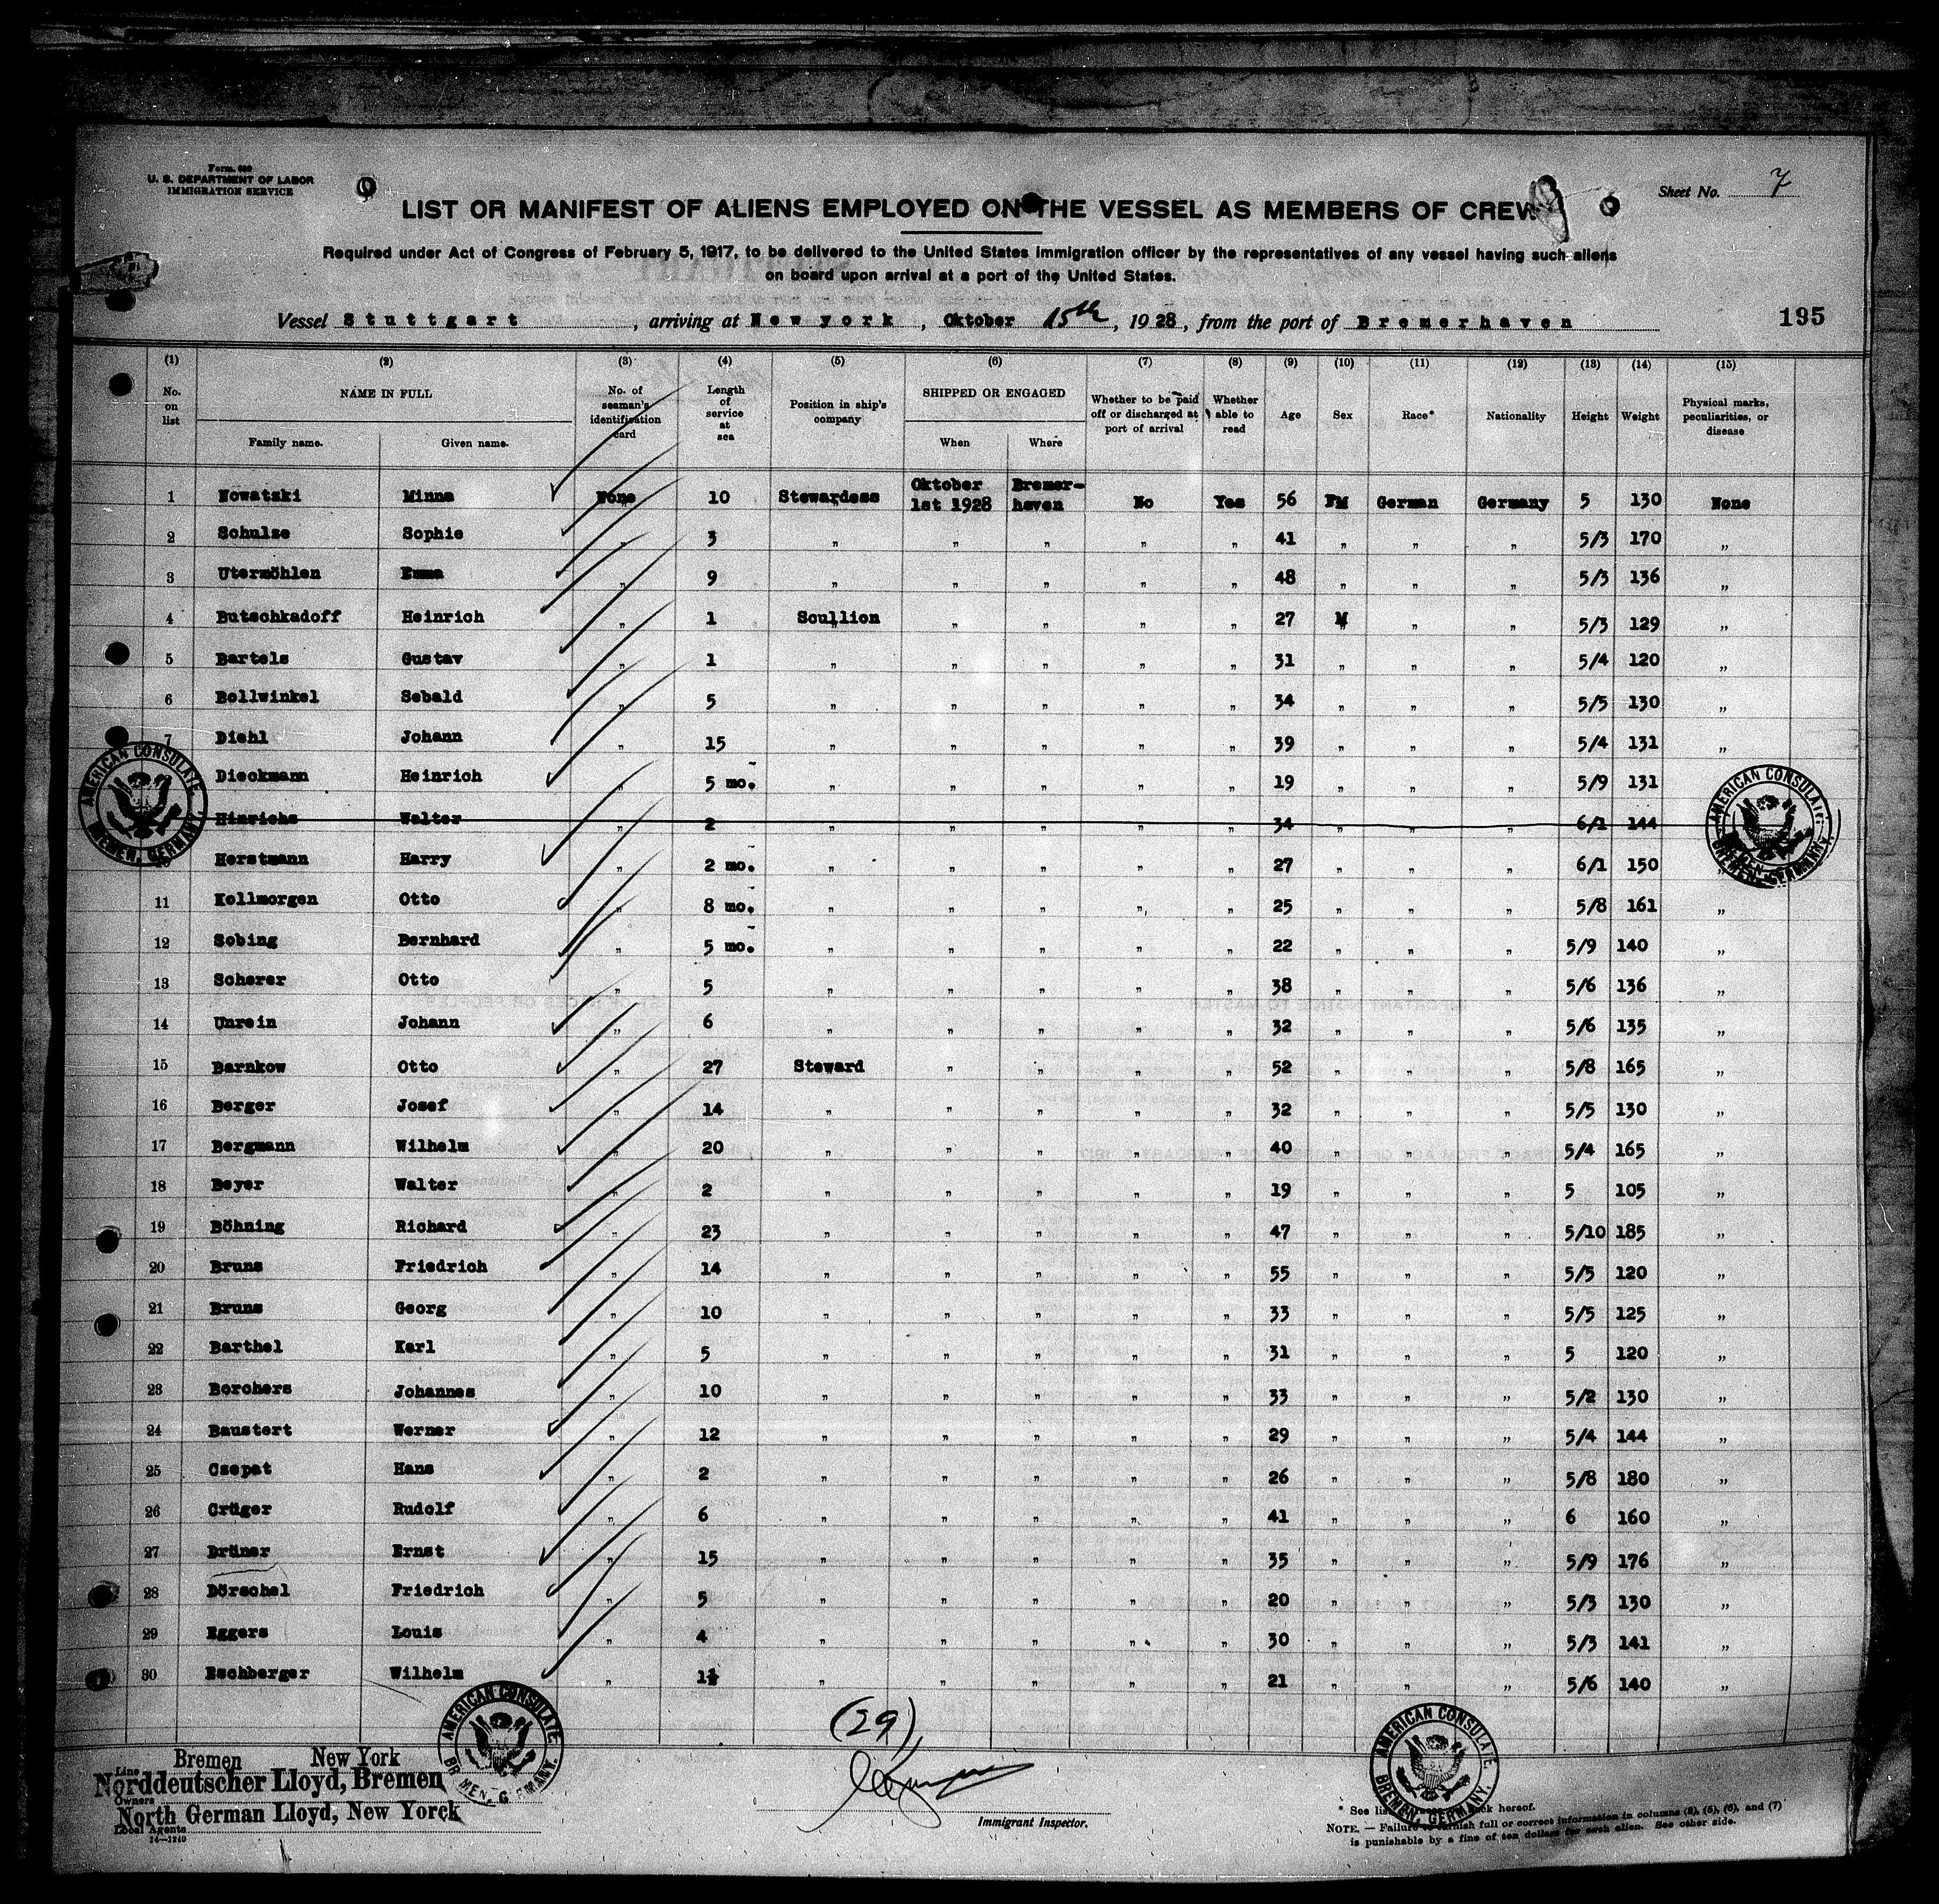 Form 680
U. S. DEPARTMENT OF LABOR
IMMIGRATION SERVICE
Sheet No. 7
LIST OR MANIFEST OF ALIENS EMPLOYED ON THE VESSEL AS MEMBERS OF CREW
Required under Act of Congress of February 5, 1917, to be delivered to the United States immigration officer by the representatives of any vessel having such aliens
on board upon arrival at a port of the United States.
Vessel Stuttgart, arriving at New york, Oktober 15th, 1928, from the port of Bremerhaven
195
(1) (2) (3) (4) (5) (6) (7) (8) (9) (10) (11) (12) (13) (14) (15)
No. on list NAME IN FULL Family name. Given name. No. of seaman's identification card Length of service at sea Position in ship's company SHIPPED OR ENGAGED When Where Whether to be paid off or discharged at port of arrival Whether able to read Age Sex Race* Nationality Height Weight Physical marks, peculiarities, or disease
1 Nowatzki Minna None 10 Stewardess Oktober 1st 1928 Bremer-haven No Yes 56 FM German Germany 5 130 None
2 Schulze Sophie „ 3 „ „ „ „ „ 41 „ „ „ 5/3 170 „
3 Utermöhlen Emma „ 9 „ „ „ „ „ 48 „ „ „ 5/3 136 „
4 Butschkadoff Heinrich „ 1 Scullion „ „ „ „ 27 M „ „ 5/3 129 „
5 Bartels Gustav „ 1 „ „ „ „ „ 31 „ „ „ 5/4 120 „
6 Bollwinkel Sebald „ 5 „ „ „ „ „ 34 „ „ „ 5/5 130 „
7 Diehl Johann „ 15 „ „ „ „ „ 39 „ „ „ 5/4 131 „
Dieckmann Heinrich „ 5 mo. „ „ „ „ „ 19 „ „ „ 5/9 131
Hinrichs Walter „ 2 „ „ „ „ „ 34 „ „ „ 6/1 144
Horstmann Harry „ 2 mo. „ „ „ „ „ 27 „ „ „ 6/1 150 „
11 Kollmorgen Otto „ 8 mo. „ „ „ „ „ 25 „ „ „ 5/8 161 „
12 Sobing Bernhard „ 5 mo. „ „ „ „ „ 22 „ „ „ 5/9 140 „
13 Scherer Otto „ 5 „ „ „ „ „ 38 „ „ „ 5/6 136 „
14 Unrein Johann „ 6 „ „ „ „ „ 32 „ „ „ 5/6 135 „
15 Barnkow Otto „ 27 Steward „ „ „ „ 52 „ „ „ 5/8 165 „
16 Berger Josef „ 14 „ „ „ „ „ 32 „ „ „ 5/5 130 „
17 Bergmann Wilhelm „ 20 „ „ „ „ „ 40 „ „ „ 5/4 165 „
18 Beyer Walter „ 2 „ „ „ „ „ 19 „ „ „ 5 105 „
19 Böhning Richard „ 23 „ „ „ „ „ 47 „ „ „ 5/10 185 „
20 Bruns Friedrich „ 14 „ „ „ „ „ 55 „ „ „ 5/5 120 „
21 Bruns Georg „ 10 „ „ „ „ „ 33 „ „ „ 5/5 125 „
22 Barthel Karl „ 5 „ „ „ „ „ 31 „ „ „ 5 120 „
23 Borchers Johannes „ 10 „ „ „ „ „ 33 „ „ „ 5/2 130 „
24 Baustert Werner „ 12 „ „ „ „ „ 29 „ „ „ 5/4 144 „
25 Czepat Hans „ 2 „ „ „ „ „ 26 „ „ „ 5/8 180 „
26 Crüger Rudolf „ 6 „ „ „ „ „ 41 „ „ „ 6 160 „
27 Drüner Ernst „ 15 „ „ „ „ „ 35 „ „ „ 5/9 176 „
28 Dörschel Friedrich „ 5 „ „ „ „ „ 20 „ „ „ 5/3 130 „
29 Eggers Louis „ 4 „ „ „ „ „ 30 „ „ „ 5/3 141 „
30 Eschberger Wilhelm „ 1½ „ „ „ „ „ 21 „ „ „ 5/6 140 „
AMERICAN CONSULATE
BREMEN, GERMANY
AMERICAN CONSULATE
BREMEN, GERMANY
AMERICAN CONSULATE
BREMEN, GERMANY.
AMERICAN CONSULATE
BREMEN, GERMANY.
(29)
Bremen New York
Line
Norddeutscher Lloyd, Bremen
Owners
North German Lloyd, New Yorck
Local Agents
14—1240
Immigrant Inspector.
* See list back hereof.
NOTE. — Failure to furnish full or correct information in columns (2), (5), (6), and (7)
is punishable by a fine of ten dollars for each alien. See other side.